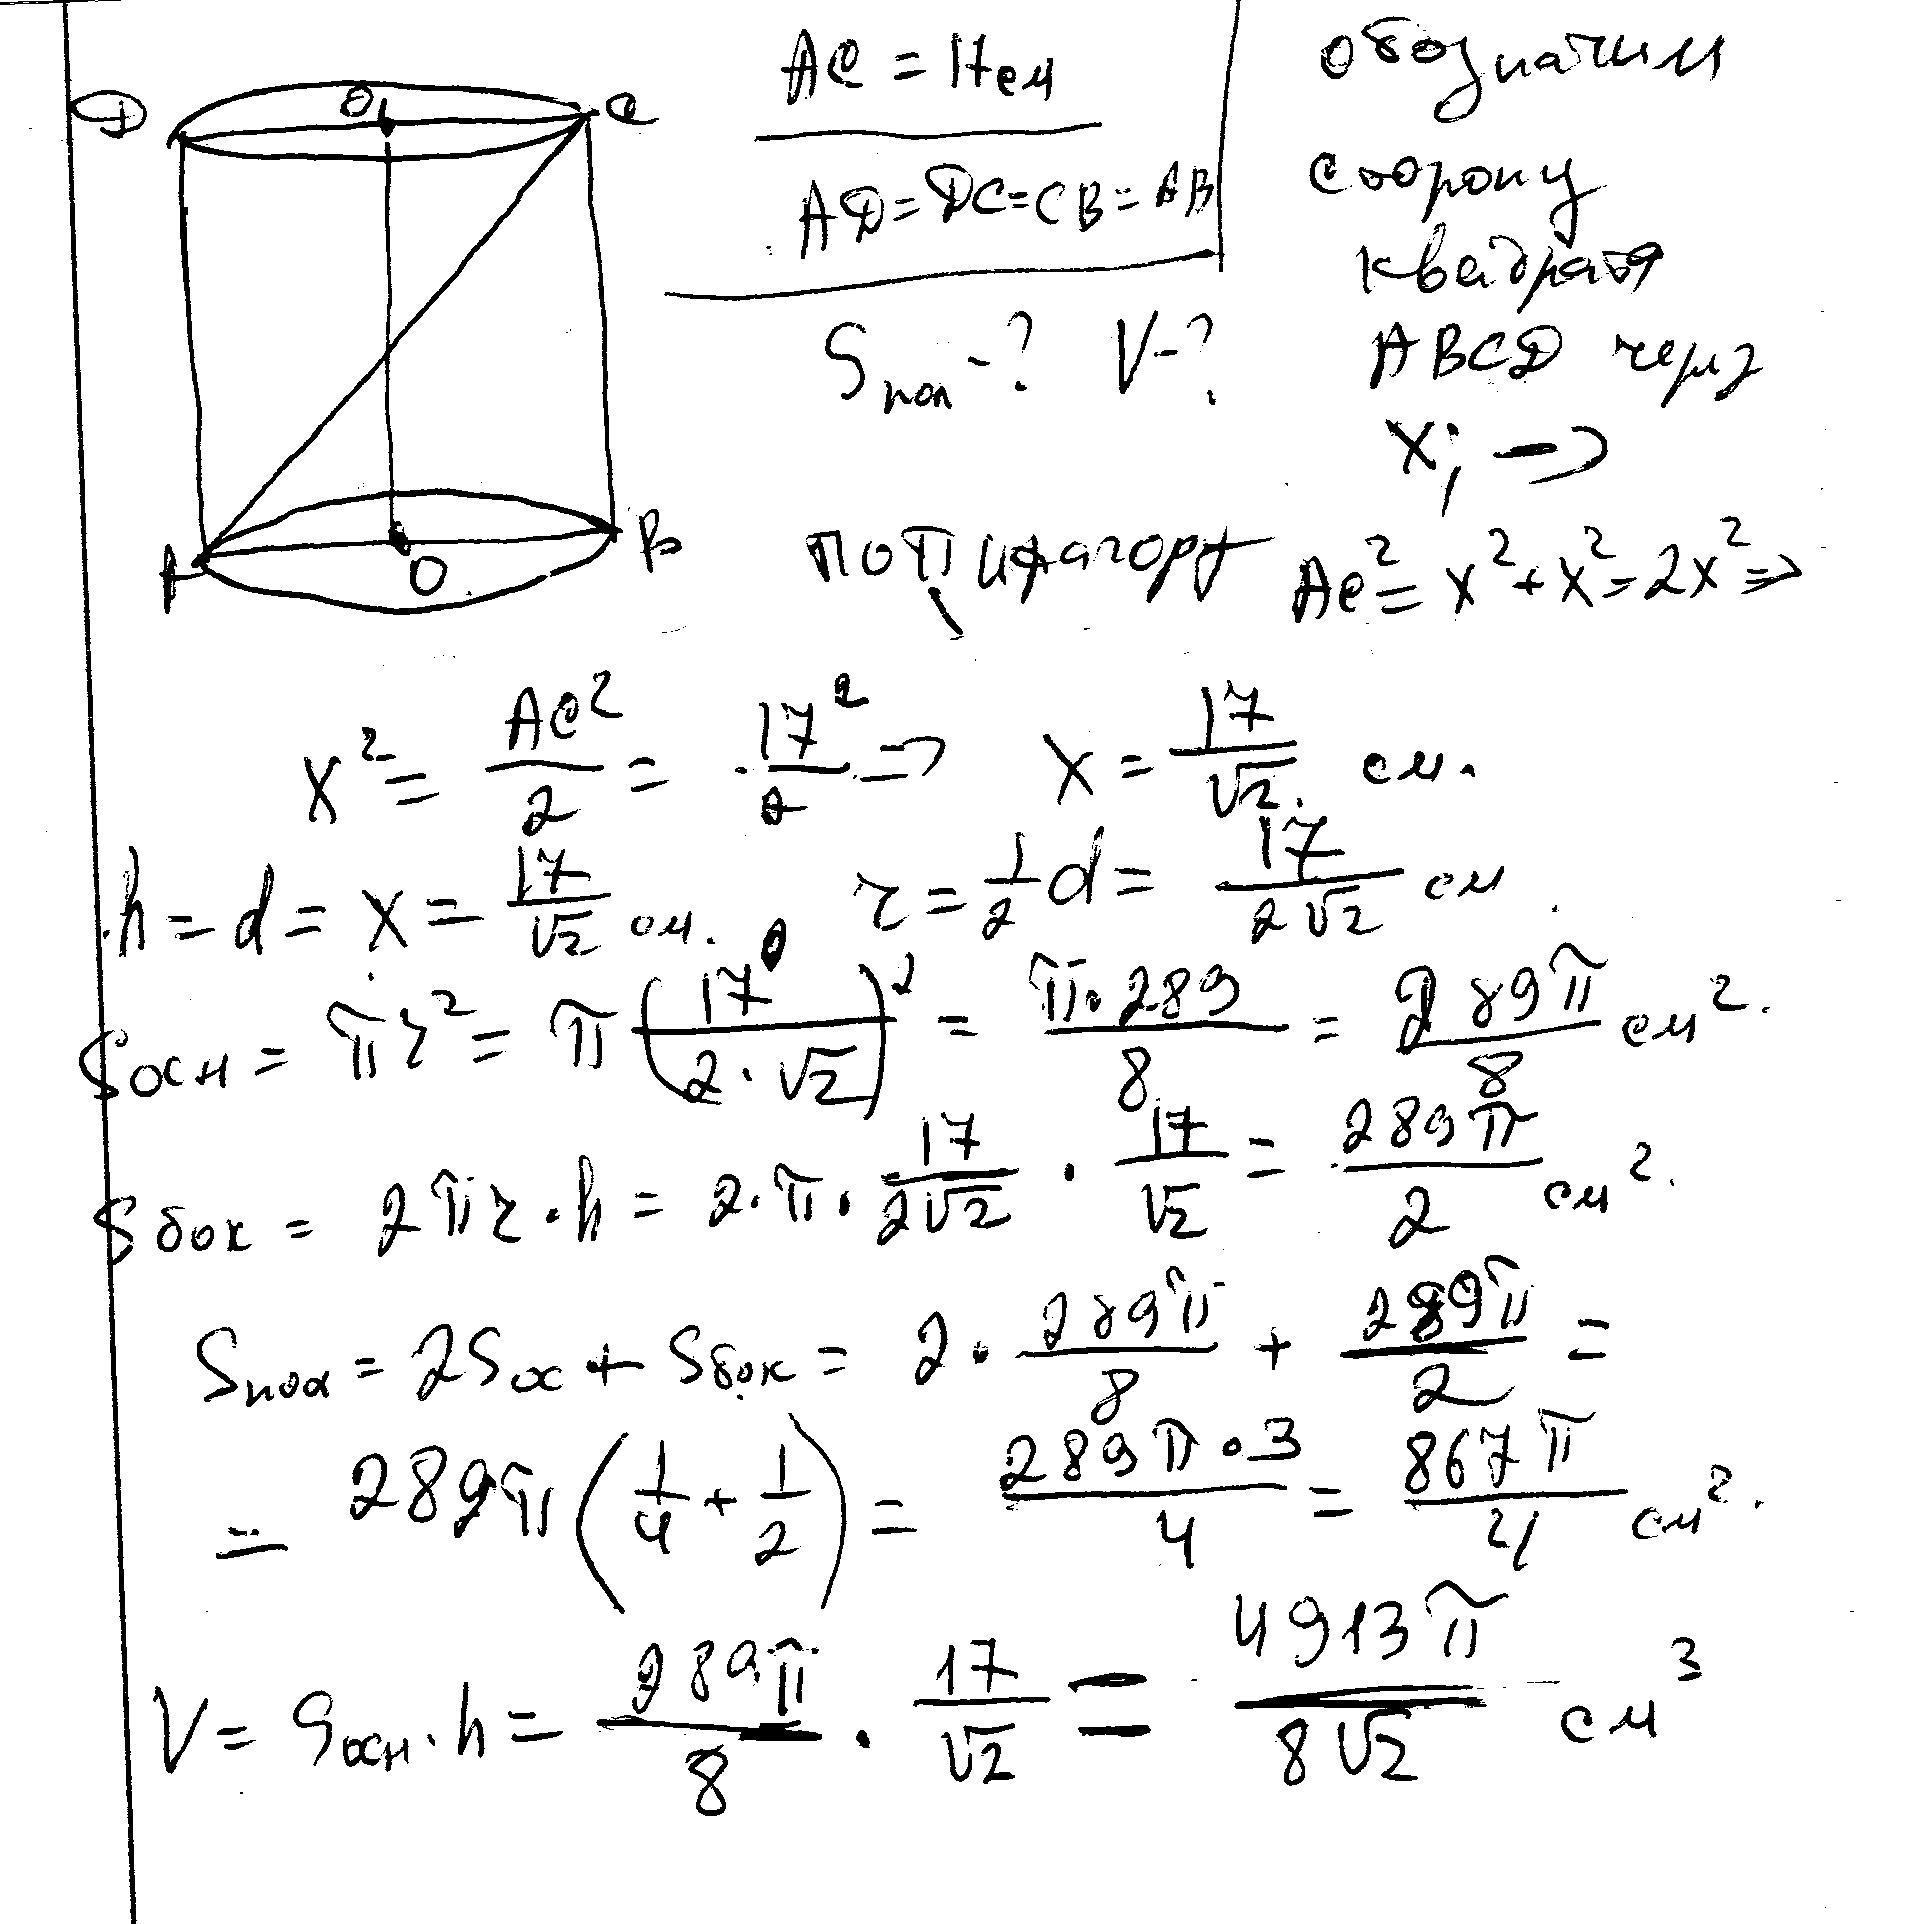 D O₁ C
A O B
AC = 17 см
AD = DC = CB = AB
Sпол - ? V - ?
обозначим
сторону
квадрата
ABCD через
x; =>
по Пифагору AC² = x² + x² = 2x² =>
x² = AC²/2 = 17²/2 => x = 17/√2 см.
h = d = x = 17/√2 см. r = 1/2 d = 17/(2√2) см.
Sосн = πr² = π(17/(2·√2))² = π·289/8 = 289π/8 см².
Sбок = 2πr·h = 2·π·17/(2√2) · 17/√2 = 289π/2 см².
Sпол = 2Sос + Sбок = 2·289π/8 + 289π/2 =
= 289π(1/4 + 1/2) = 289π·3/4 = 867π/4 см².
V = Sосн·h = 289π/8 · 17/√2 = 4913π/(8√2) см³